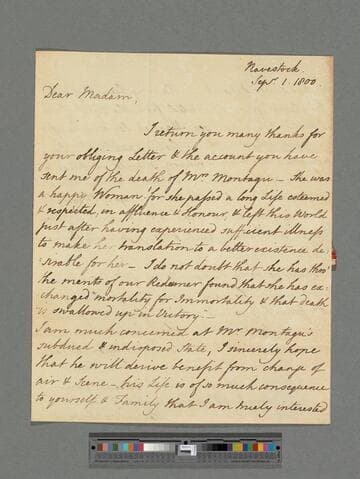 Navestock.
Sepr. 1. 1800
Dear Madam,
I return you many thanks for
your obliging Letter & the account you have
sent me of the death of Mrs Montagu – She was
a happy Woman! for she passed a long Life esteemed
& respected, in affluence & Honour, & left this World
just after having experienced sufficient illness
to make her translation to a better existence de:
:sirable for her – I do not doubt that she has thro'
the merits of our Redeemer found that she has ex:
:changed mortality for Immortality & that death
is swallowed up in Victory. –
I am much concerned at Mr Montagu's
subdued & indisposed State, I sincerely hope
that he will derive benefit from change of
air & Scene – his Life is of so much consequence
to yourself & Family that I am truely interested